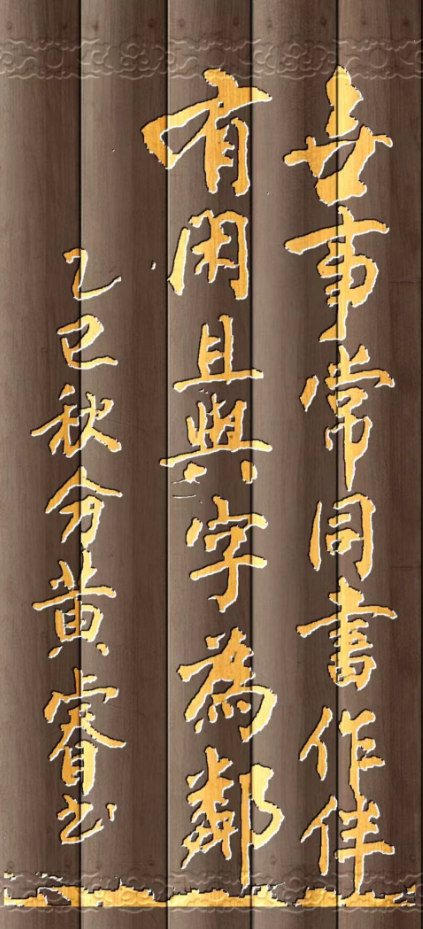 喜事常同書作伴
有閑且與字為鄰
乙巳秋分黃睿書